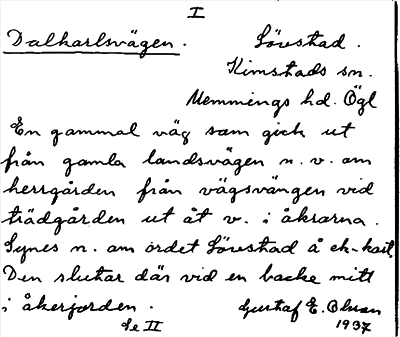 I
Dalkarlsvägen. Lövestad.
Kimstads sn.
Memmings hd. Ögl
En gammal väg som gick ut
från gamla landsvägen n. v. om
herrgården från vägsvängen vid
trädgården ut åt v. i åkrarna.
Synes n. om ordet Lövestad å ek-kart.
Den slutar där vid en backe mitt
i åkerjorden. Gustaf E. Olsson
Se II 1937